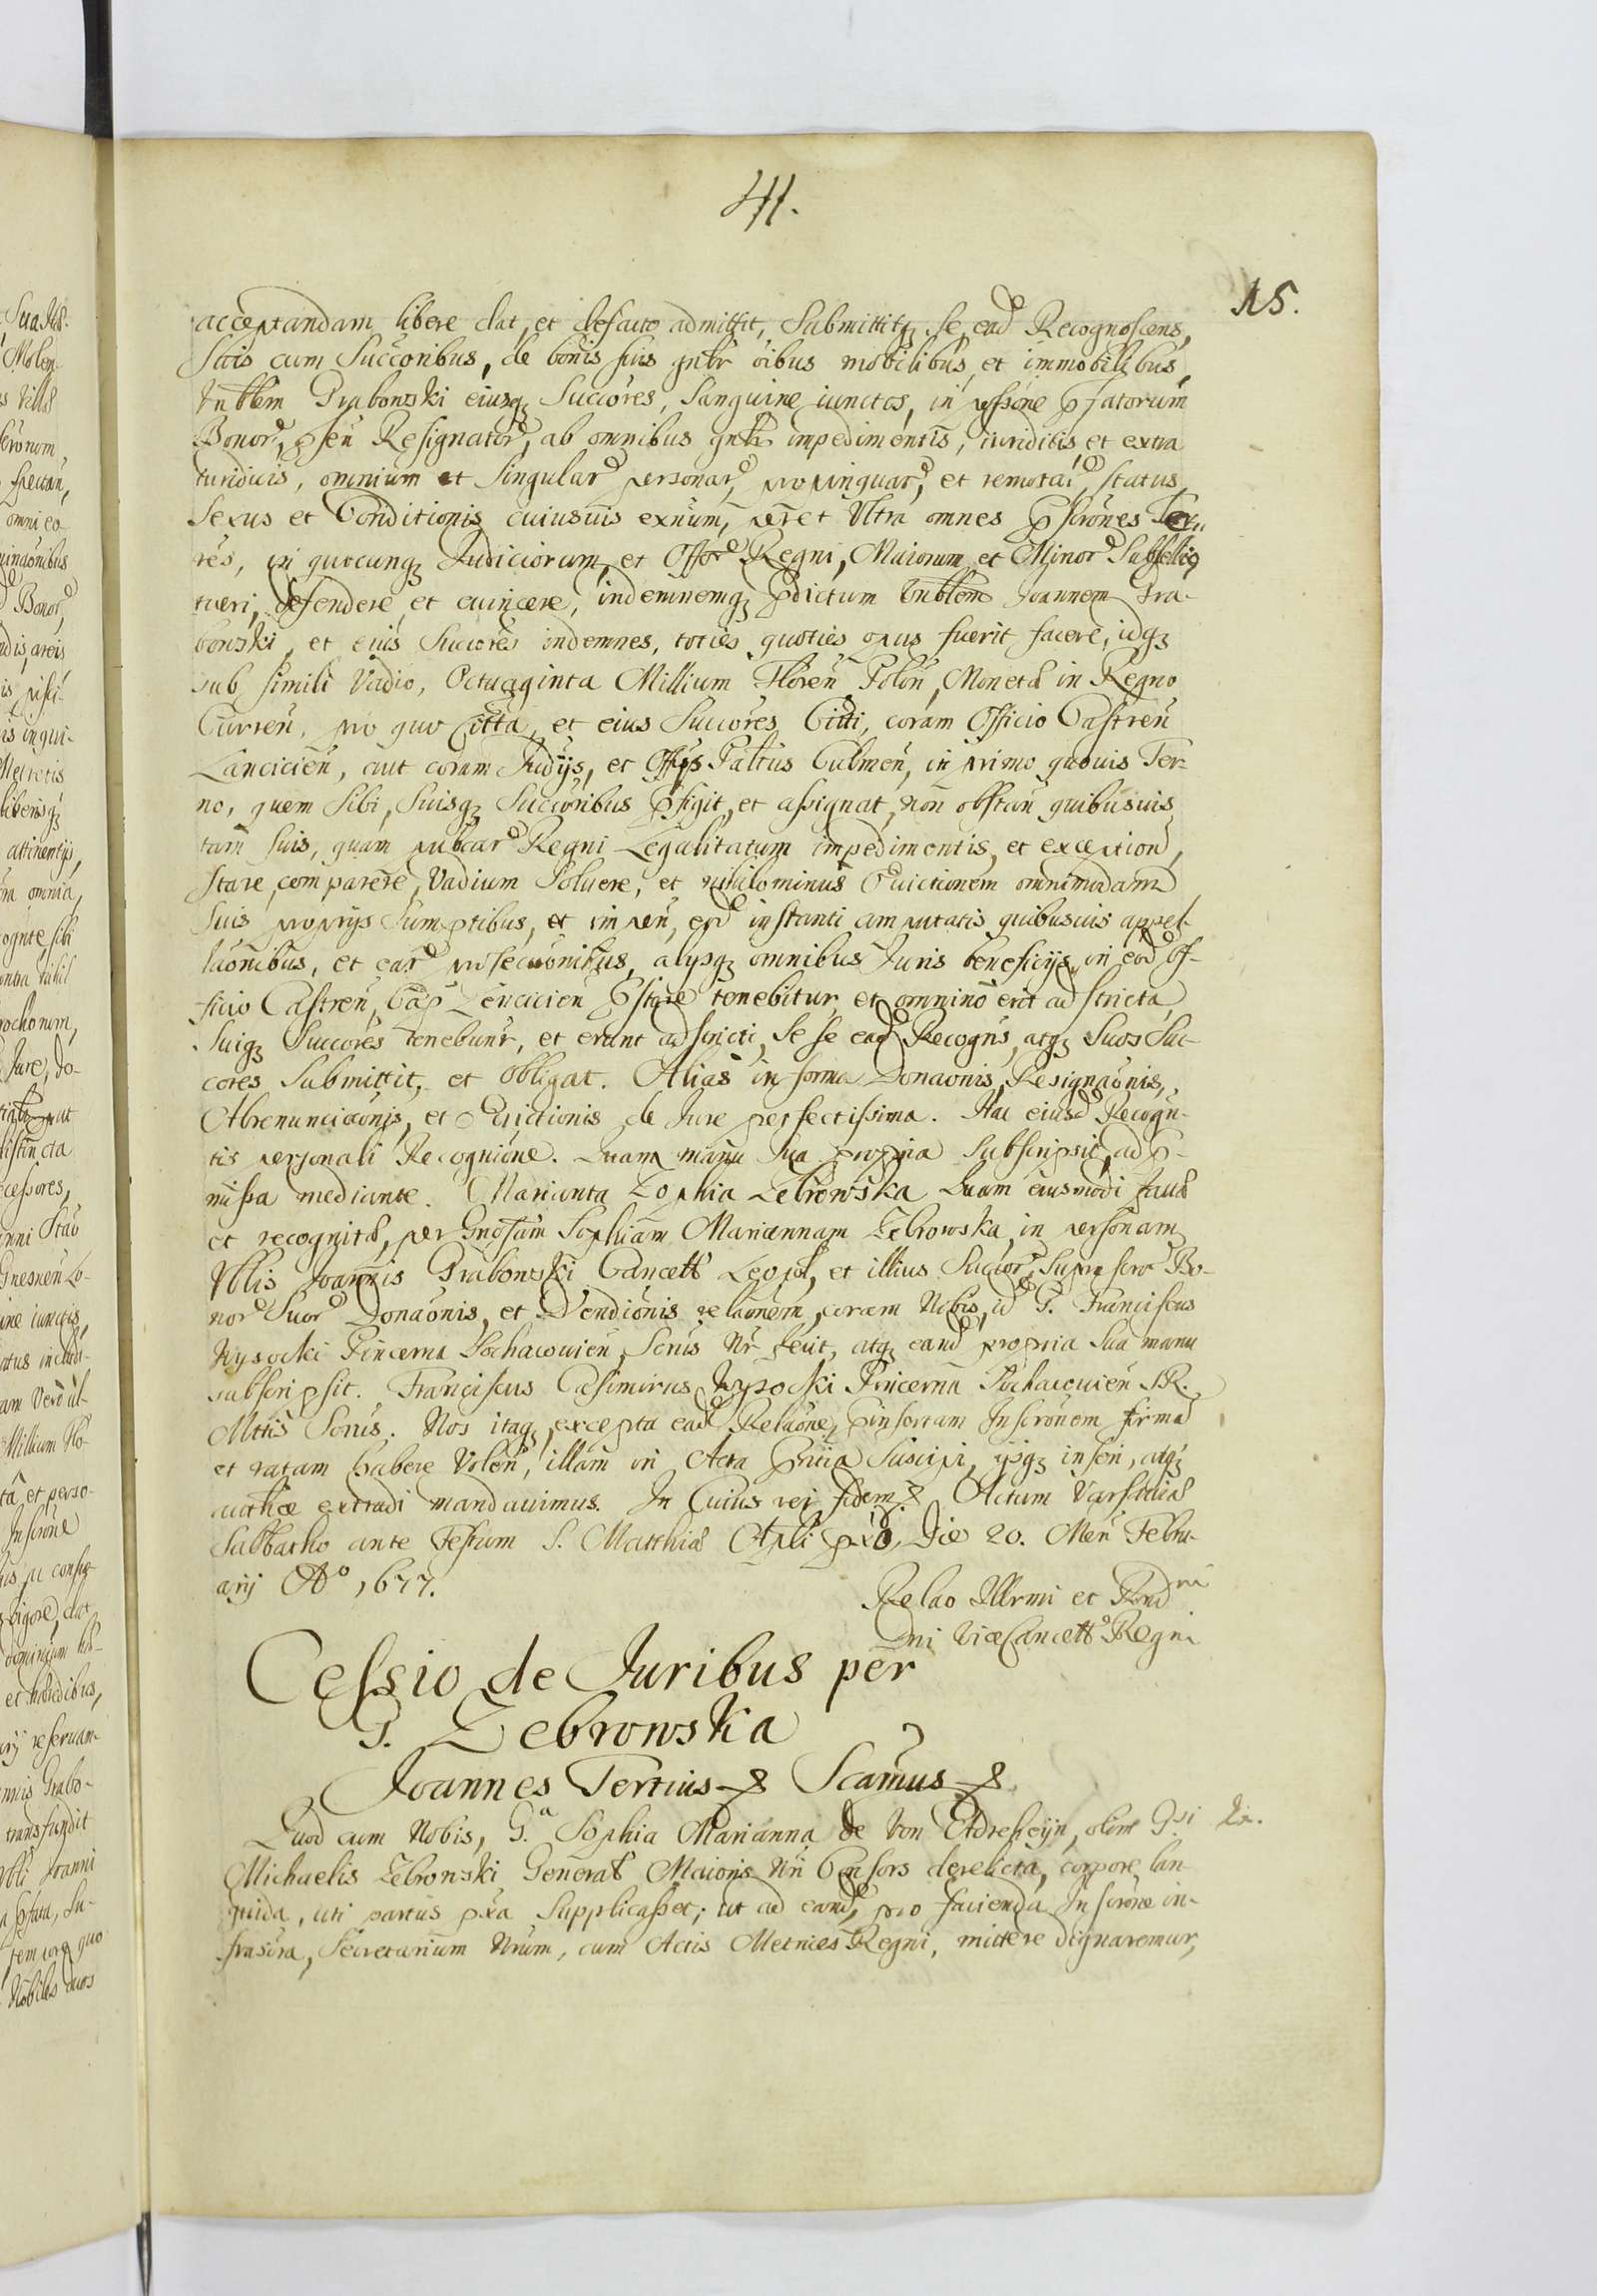 41.
15.
acceptandam libere dat, et defacto admittit, Submittitq se ead Recognoscens,
Suis cum Succoribus, de bonis suis gnlr oibus mobilibus, et immobilibus,
Vnblem Grabowski eiusq Succores, Sanguine iunctos, in pssione pfatorum
Bonor, psen Resignator, ab omnibus gnlr impedimentis, iuridicis et extra
iuridicis, omnium et Singular personar, propinquar, et remotar, status
Sexus et Conditionis cuiusuis exnum, per et Vltra omnes pscrones Terr
res, in quocunq Judiciorum et Offor Regni, Maiorum et Minor Subsellio
tueri, defendere et euincere, indemnemq pdictum Vnblem Joannem Gra-
bowski, et eius Succores indemnes, toties quoties opus fuerit facere, idq
sub simili Vadio, Octuaginta Millium Floren Polon, Moneta in Regno
Curren, pro quo Citta, et eius Succores Citti, coram Officio Castren
Lancicien, aut coram Judijs, et Offijs Paltus Culmen, in primo quouis Ter-
no, quem Sibi, Suisq Succoribus pfigit, et assignat, non obstan quibusuis
tam suis, quam publcar Regni Legalitatum impedimentis, et exception,
Stare, comparere, Vadium Soluere, et nihilominus Euictionem omnimodam
Suis proprijs Sumptibus, et impen, eod instanti amputatis quibusuis appel-
laonibus, et ear prosecuonibus, alijsq omnibus Juris beneficijs, in eod Of-
ficio Castren Cap Lencicien pstare tenebitur, et omnino erit adstricta,
Suiq Succores tenebunr, et erunt adstricti, Se se ead Recogns, atq Suos Suc-
cores Submittit, et Obligat. Alias in forma Donaonis, Resignaonis,
Abrenunciaonis, et Euictionis de Jure perfectissima. Hac eiusd Recogn-
tis personali Recognione. Quam manu sua propria Subscripsit, ad p-
missa mediante. Marianta Zophia Zebrowska Quam eiusmodi facta
et recognita, per Gnosam Sophiam Mariannam Zebrowska, in personam
Vblis Joannis Grabowski Cancell Leopol, et illius Succor, Supra scror Bo-
nor Suor Donaonis, et Vendionis relaonem, coram Nobis, id G. Franciscus
Wysocki Pincerna Sochacouien, Scrius Nr fecit, atq eand propria Sua manu
subscripsit. Franciscus Casimirus Wysocki Pincerna Sochacouien S.R.
Mttis Scrius. Nos itaq, excepta ead Relaone, pinsertam Inscrionem firma
et ratam habere Volen, illam in Acta pntia Suscipi, ijsq inseri, atq
authce extradi mandauimus. In Cuius rei fidem. Actum Varsauia
Sabbatho ante Festum S. Matthia Apli pxo, Die 20. Men Febru-
arij Ao 1677.
Relao Illrmi et Rnd mi
Dni ViceCancell Regni
Cessio de Juribus per
G. Zebrowska
Joannes Tertius Scamus
Quod cum Nobis, Ga Sophia Marianna de Von, olim Gsi
Michaelis Zebrowski General Maioris Nri Consors derelicta, corpore lan-
guida, uti partis pxa Supplicasset; ut ad eand, pro facienda Inscrone in-
frascra, Secretarium Nrum, cum Actis Metrices Regni, mittere dignaremur,